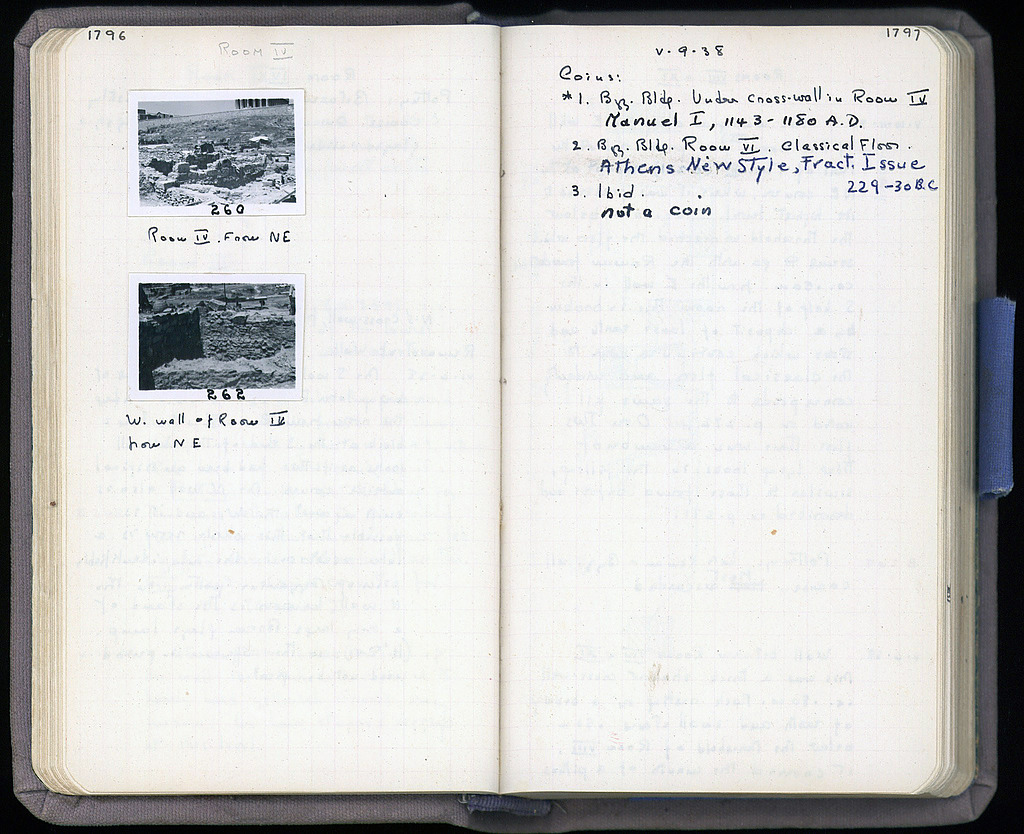 1796
ROOM IV
260
Room IV. From NE
262
W. wall of Room IV
from NE
1797
V-9-38
Coins:
*1. Byz. Bldg. Under cross-wall in Room IV
Manuel I, 1143-1180 A.D.
2. Byz. Bldg. Room VI. Classical Floor.
Athens New Style, Fract. Issue
229-30 B.C
3. Ibid.
not a coin